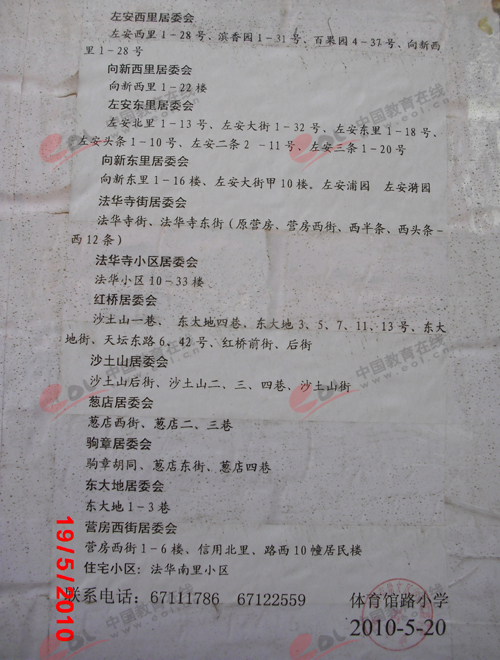 左安西里居委会
左安西里1-28号、滨香园1-31号、百果园4-37号、向新西
里1-28号
向新西里居委会
向新西里1-22楼
左安东里居委会
左安北里1-13号、左安大街1-32号、左安东里1-18号、
左安头条1-10号、左安二条2 -11号、左安三条1-20号
向新东里居委会
向新东里1-16楼、左安大街甲10楼。左安浦园 左安漪园
法华寺街居委会
法华寺街、法华寺东街(原营房、营房西街、西半条、西头条-
西12条)
法华寺小区居委会
法华小区10-33楼
红桥居委会
沙土山一巷、 东大地四巷、东大地3、5、7、11、13号、东大
地街、天坛东路6、42号、红桥前街、后街
沙土山居委会
沙土山后街、沙土山二、三、四巷、沙土山街
葱店居委会
葱店西街、葱店二、三巷
驹章居委会
驹章胡同、葱店东街、葱店四巷
东大地居委会
东大地1-3巷
营房西街居委会
营房西街1-6楼、信用北里、路西10幢居民楼
住宅小区：法华南里小区
联系电话：67111786 67122559 体育馆路小学
2010-5-20
19/5/2010
中国教育在线